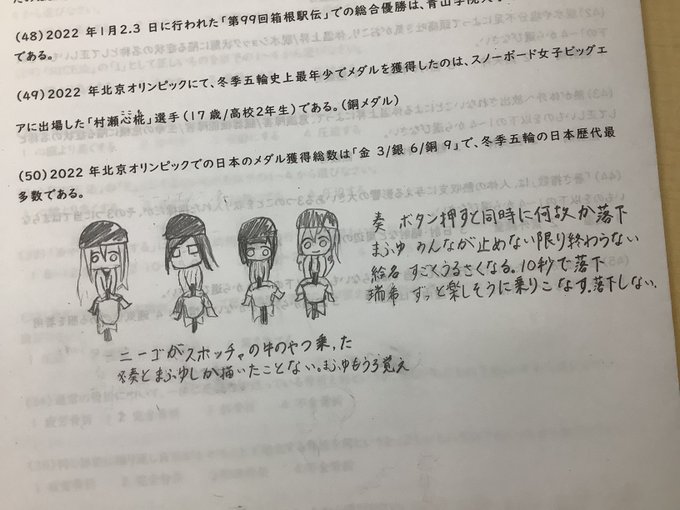 (48)2022 年1月2.3 日に行われた「第99回箱根駅伝」での総合優勝は、青山学院大
である。
(49)2022 年北京オリンピックにて、冬季五輪史上最年少でメダルを獲得したのは、スノーボード女子ビッグエ
アに出場した「村瀬心椛」選手(17歳/高校2年生)である。(銅メダル)
(50)2022 年北京オリンピックでの日本のメダル獲得総数は「金 3/銀 6/銅 9」で、冬季五輪の日本歴代最
多数である。
奏 ボタン押すと同時に何故か落下
まふゆ みんなが止めない限り終わらない
絵名 すごくうるさくなる。10秒で落下
瑞希 ずっと楽しそうに乗りこなす。落下しない。
ニーゴがスポッチャの牛のやつ乗った
奏とまふゆしか描いたことない。まふゆもうろ覚え